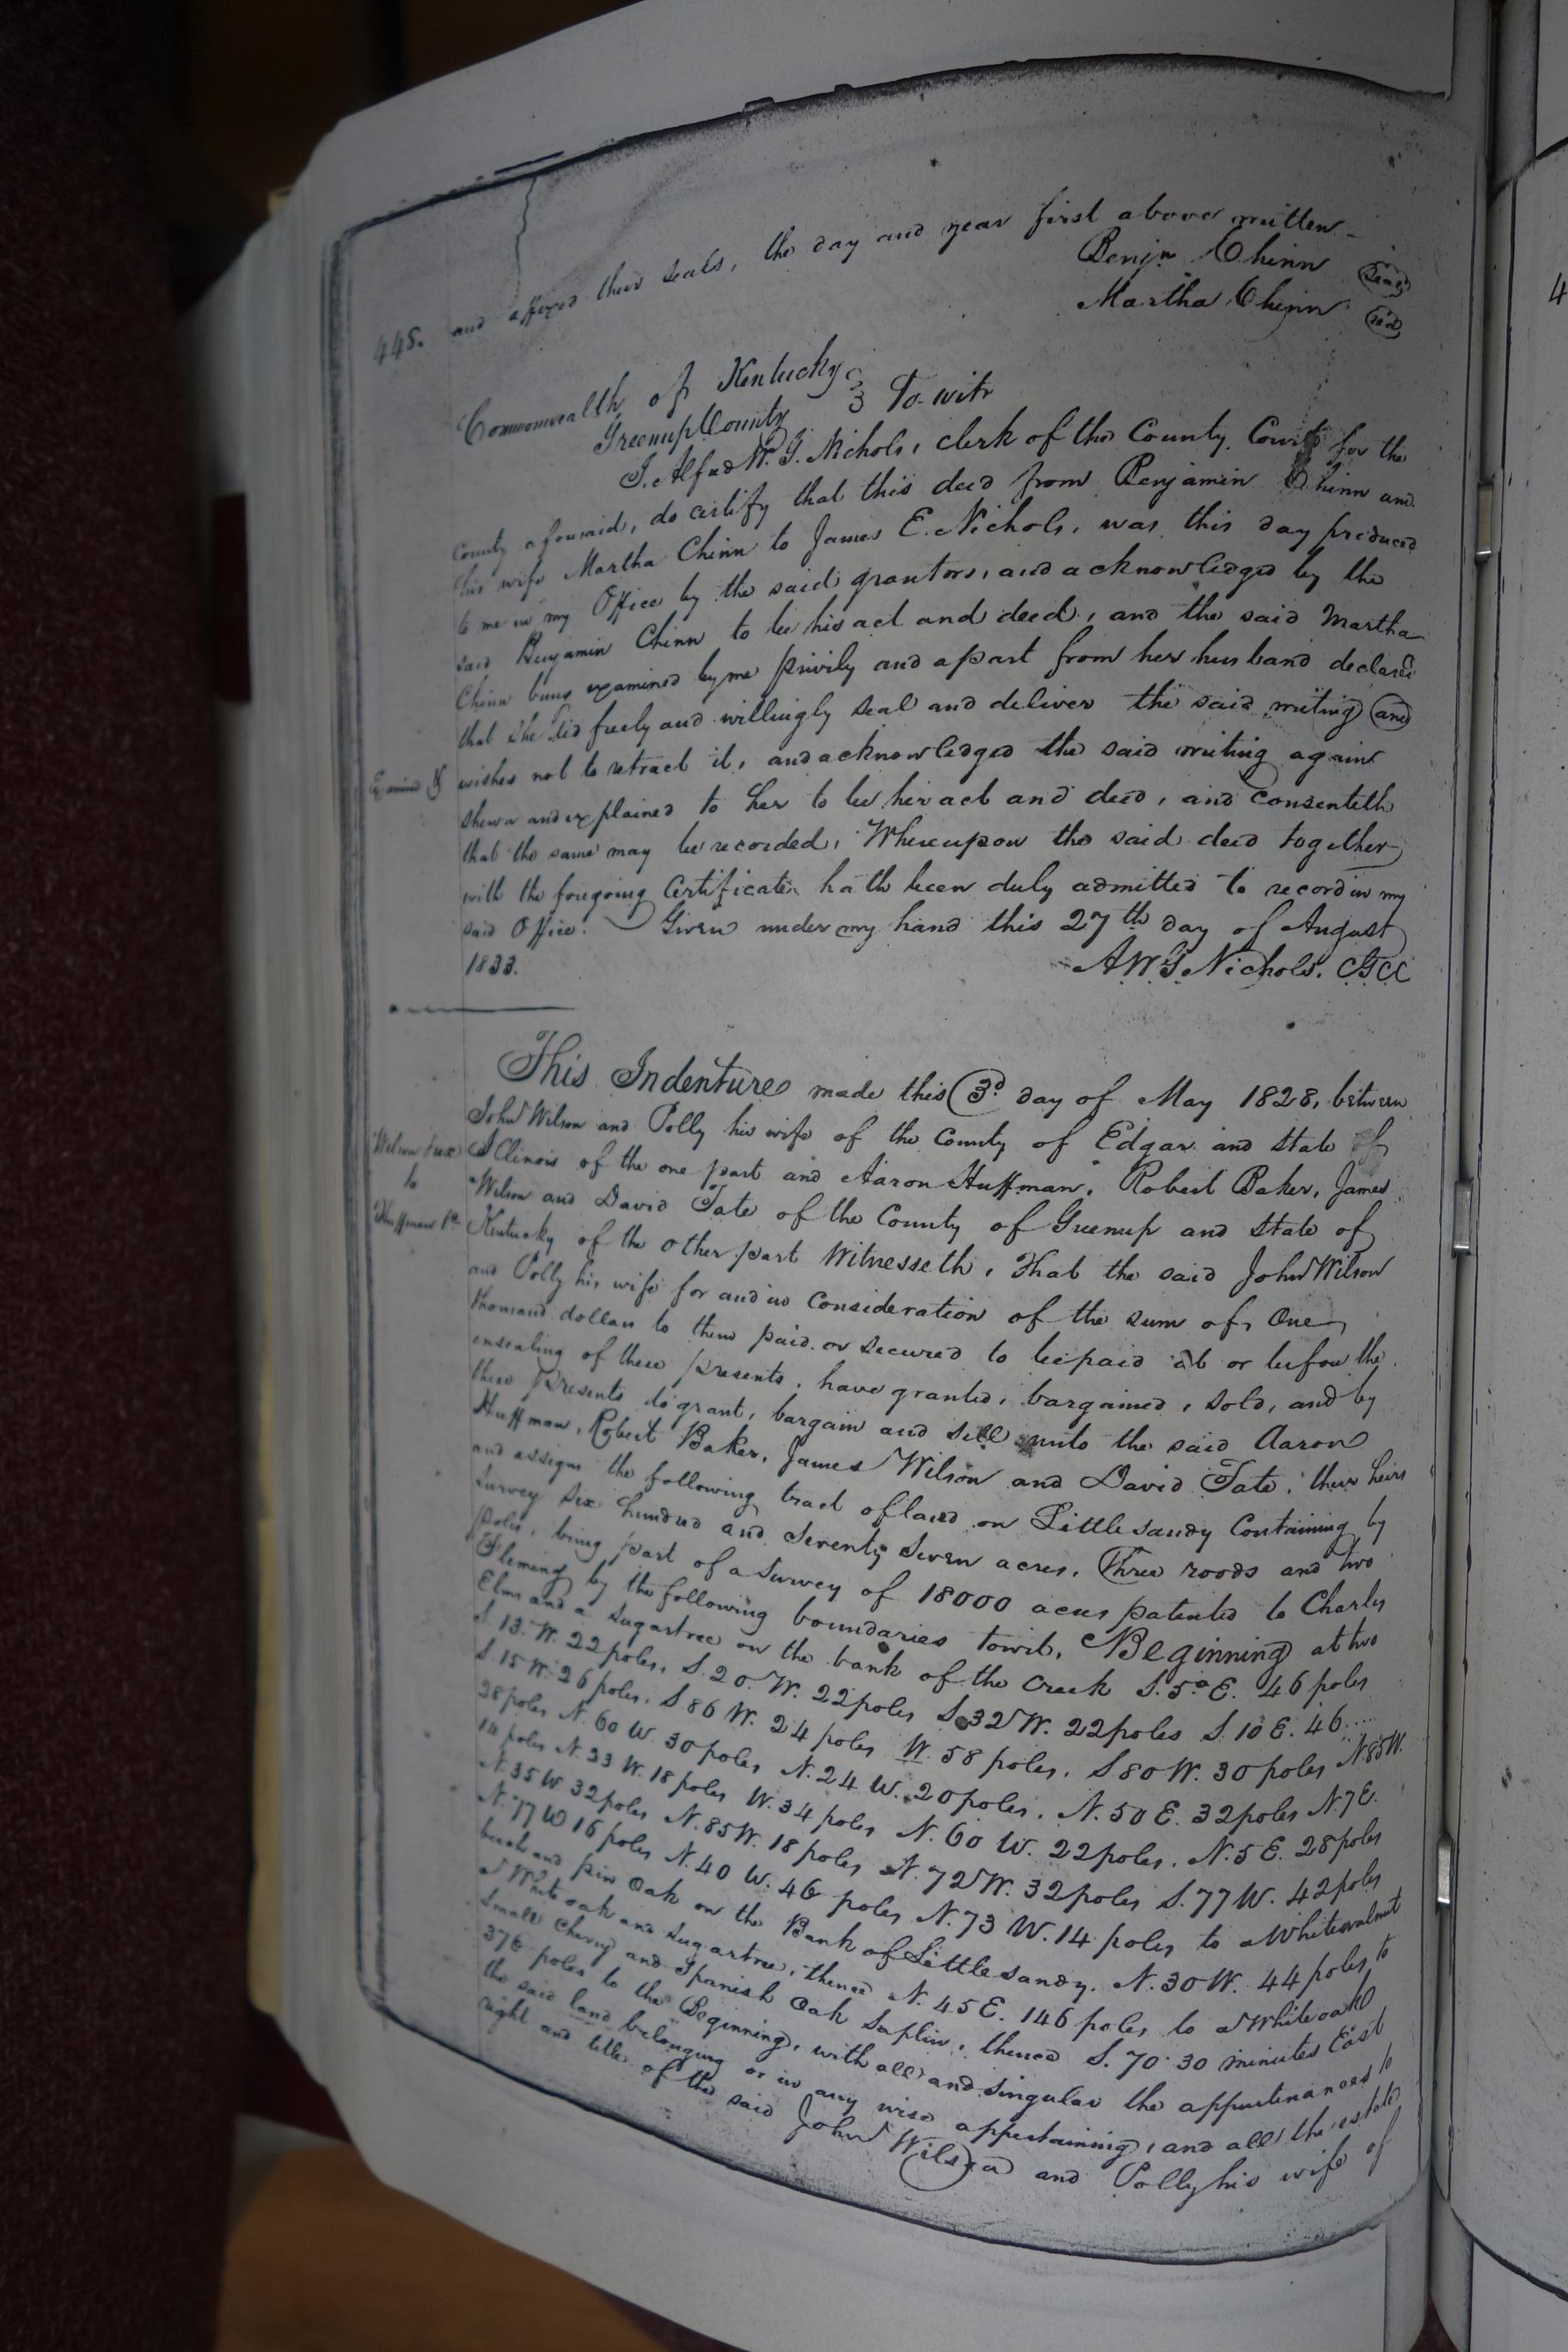 448. and affixed their seals, the day and year first above written
Benjn Chinn (Seal)
Martha Chinn (Seal)
Commonwealth of Kentucky
Greenup County } To-wit
I, Alfred W. G. Nichols, clerk of the County Court for the
County aforesaid, do certify that this deed from Benjamin Chinn and
his wife Martha Chinn to James E. Nichols, was this day produced
to me in my Office by the said grantors, and acknowledged by the
said Benjamin Chinn to be his act and deed, and the said Martha
Chinn being examined by me privily and apart from her husband declared
that she did freely and willingly seal and deliver the said writing and
Examined
wishes not to retract it, and acknowledged the said writing again
shewn and explained to her to be her act and deed, and consenteth
that the same may be recorded, Whereupon the said deed together
with the foregoing Certificate hath been duly admitted to record in my
said Office. Given under my hand this 27th day of August
1833.
A.W.G. Nichols. C.G.C.C
This Indenture made this 3d day of May 1828, between
John Wilson and Polly his wife of the County of Edgar and State of
Wilson & ux
to
Huffman &c
Illinois of the one part and Aaron Huffman, Robert Baker, James
Wilson and David Tate of the County of Greenup and State of
Kentucky of the other part Witnesseth, That the said John Wilson
and Polly his wife for and in Consideration of the sum of One
thousand dollars to them paid or secured to be paid at or before the
ensealing of these presents, have granted, bargained, sold, and by
these presents do grant, bargain and sell unto the said Aaron
Huffman, Robert Baker, James Wilson and David Tate, their heirs
and assigns the following tract of land on Little Sandy Containing by
survey six hundred and seventy seven acres, Three roods and two
poles, being part of a survey of 18000 acres patented to Charles
Fleming by the following boundaries towit, Beginning at two
Elms and a Sugartree on the bank of the Creek S. 5° E. 46 poles
S. 13. W. 22 poles, S. 20. W. 22 poles S. 32 W. 22 poles S. 10 E. 46....
S. 15 W. 26 poles, S 86 W. 24 poles W. 58 poles, S. 80 W. 30 poles N. 85 W.
28 poles N. 60 W. 30 poles N. 24 W. 20 poles, N. 50 E. 32 poles N. 7 E.
14 poles N. 23 W. 18 poles W. 34 poles N. 60 W. 22 poles, N. 5 E. 28 poles
N. 35 W. 32 poles N. 85 W. 18 poles N. 72 W. 32 poles S. 77 W. 42 poles
N. 77 W 16 poles N. 40 W. 46 poles N. 73 W. 14 poles to a White walnut
beech and pin Oak on the Bank of Little sandy. N. 30 W. 44 poles to
a White oak and Sugartree, thence N. 45 E. 146 poles to a White oak
small cherry and Spanish Oak Saplin, thence S. 70. 30 minutes East
376 poles to the Beginning, with all and singular the appurtenances to
the said land belonging or in any wise appertaining, and all the estate
right and title of the said John Wilson and Polly his wife of